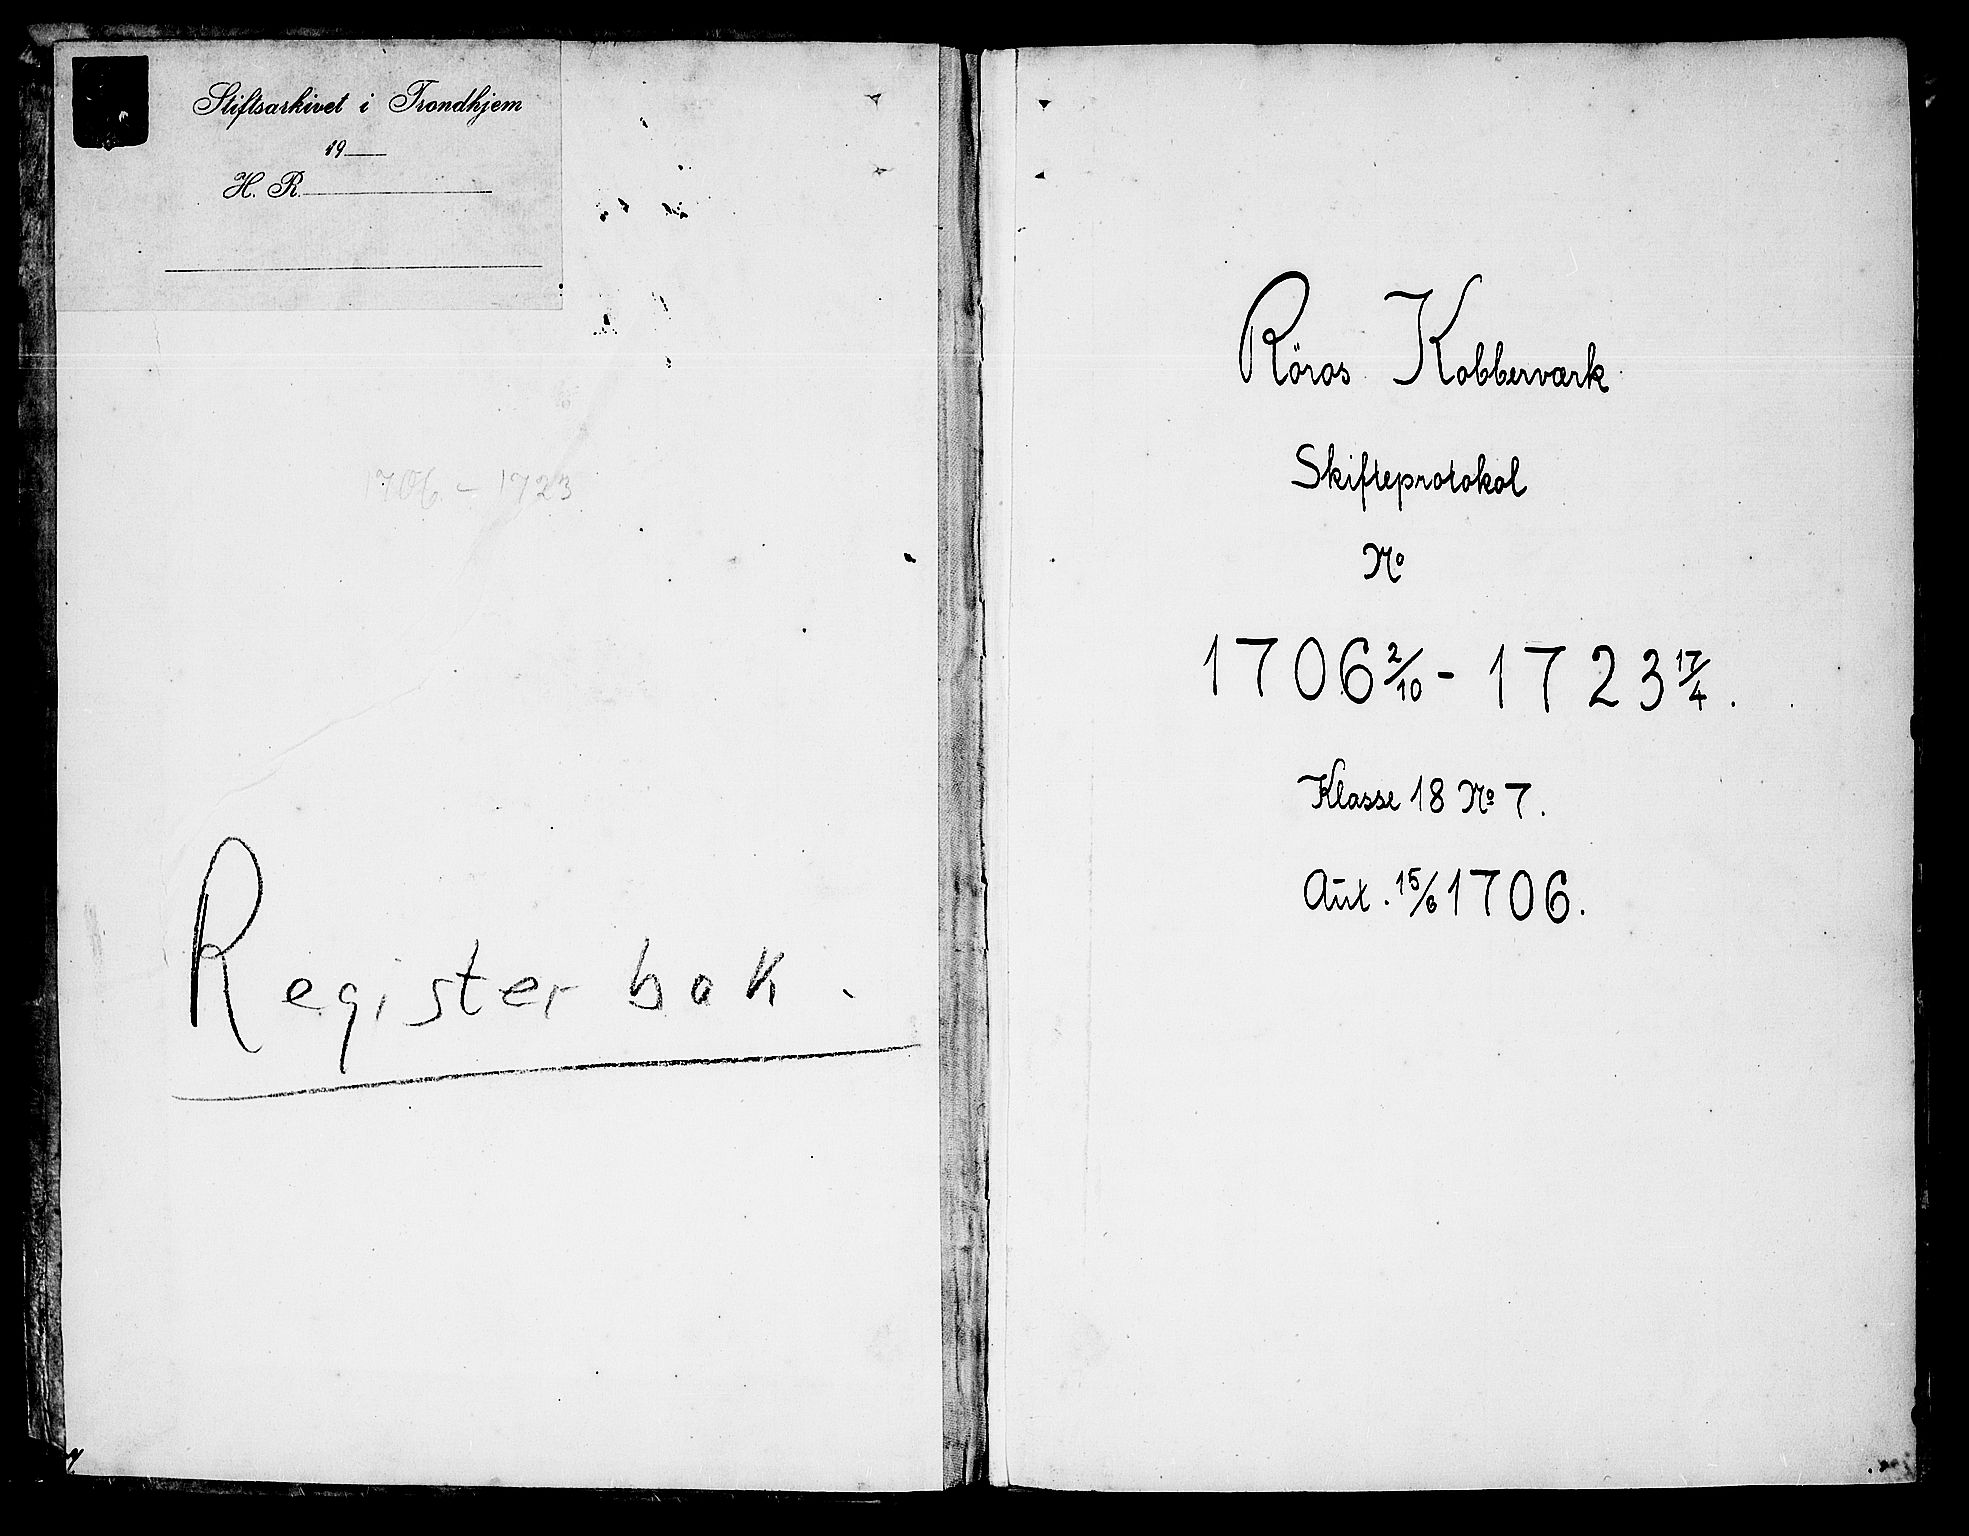 Stiftsarkivet i Trondhjem
19
H. R.
1706 - 1723
Register bok.
Röros Kobberværk
Skifteprotokol
No
1706 2/10 - 1723 17/4.
Klasse 18 No 7.
Aut. 15/6 1706.